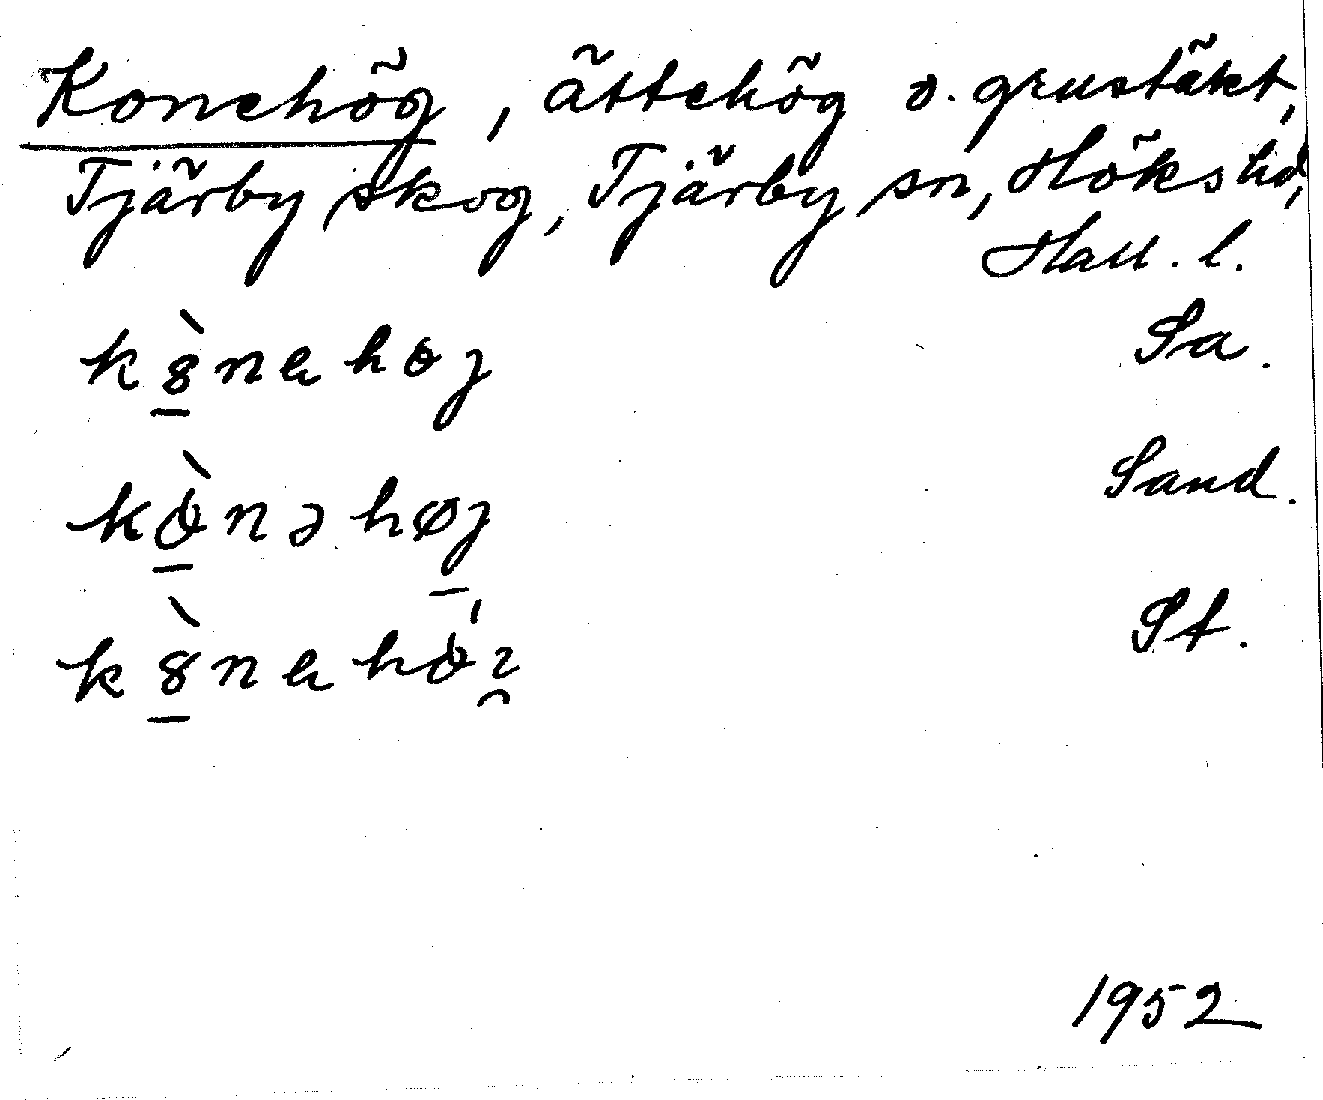 Konehög, ättehög o. grustäkt,
Tjärby skog, Tjärby sn, Höks hd,
Hall. l.
Sa.
Sand.
St.
1952